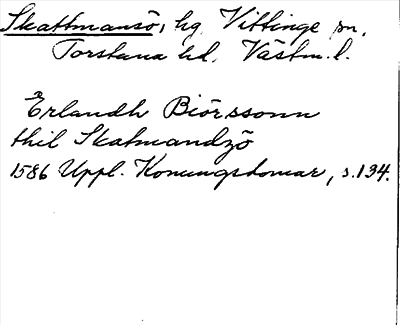 Skattmansö, hg, Vittinge sn,
Torstuna hd, Västm. l.
Erlandh Biörssonn
thil Skatmandzö
1586 Uppl. Konungsdomar, s. 194.